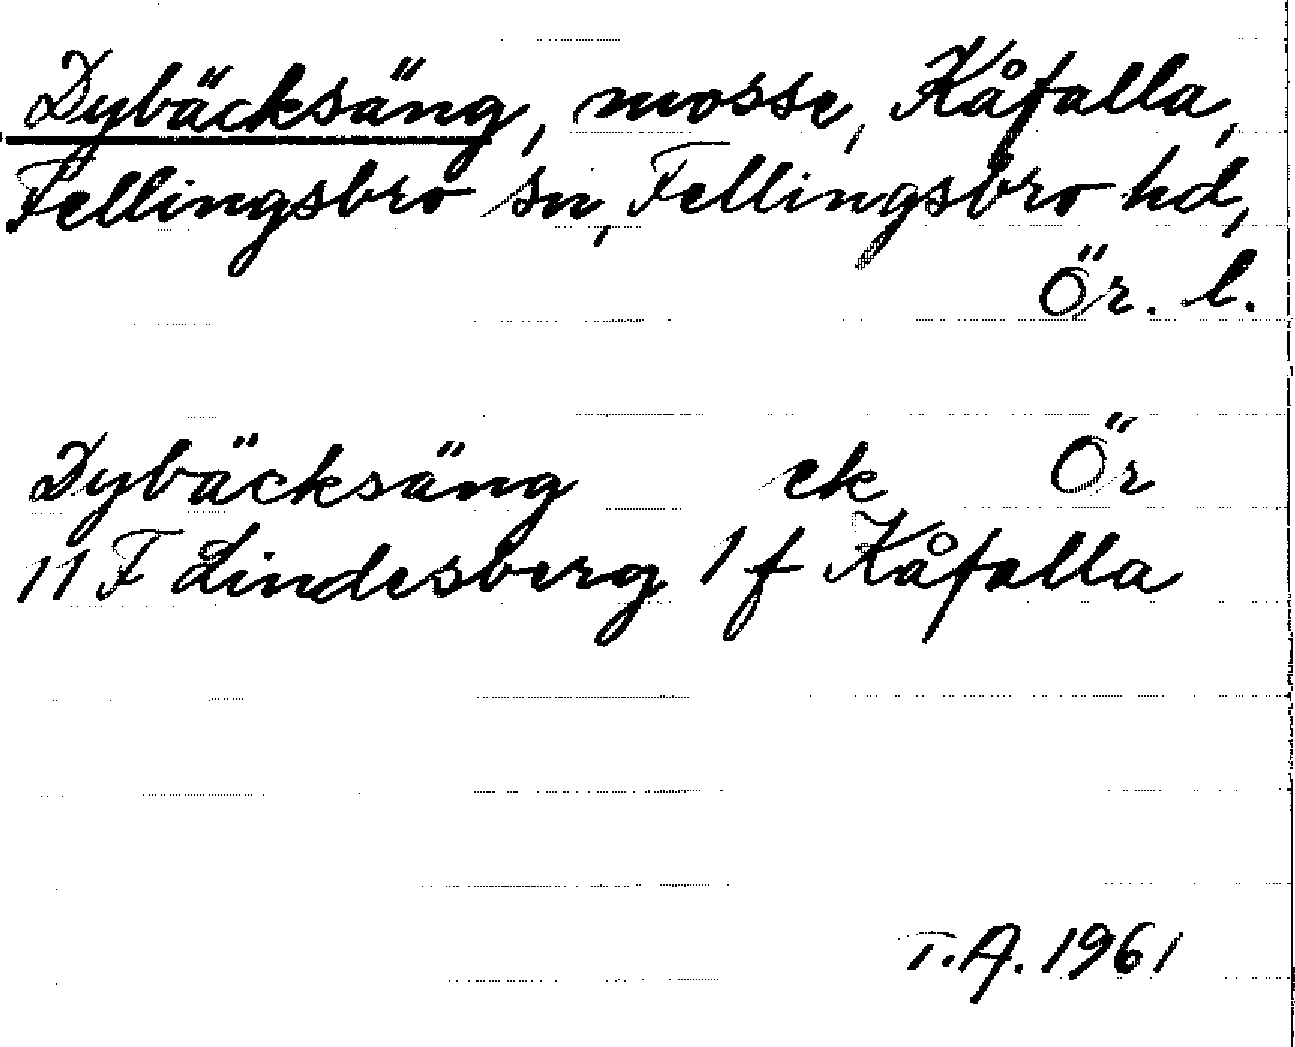 Dybäcksäng, mosse, Kåfalla,
Fellingsbro sn, Fellingsbro hd,
Ör. l.
Dybäcksäng ek Ör
11 F Lindesberg 1 f Kåfalla
T.A. 1961